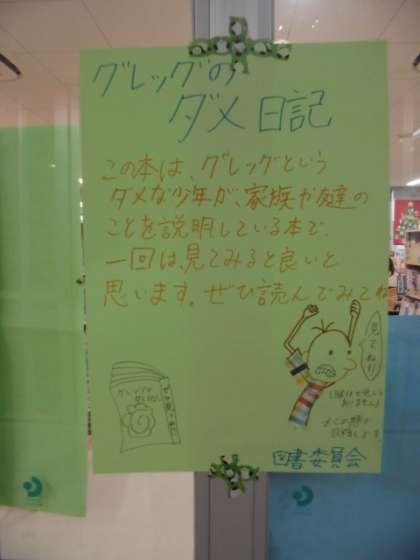 グレッグの
ダメ日記
この本は、グレッグという
ダメな少年が、家族や友達の
ことを説明している本で、
一回は、見てみると良いと
思います。ぜひ読んでみてね
見てね!!
図書委員会